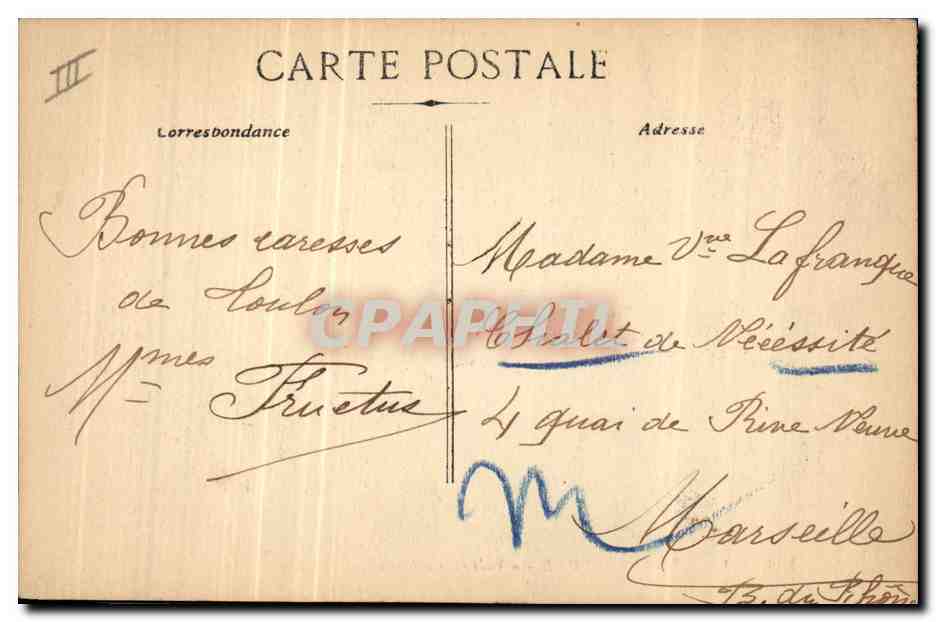 III
CARTE POSTALE
Correspondance
Adresse
Bonnes caresses
de Toulon
Mmes
Fructus
Madame Vve Lafranque
Chalet de Nécéssité
4 quai de Rive Neuve
M
Marseille
B. du Rhône
CPAPHIL